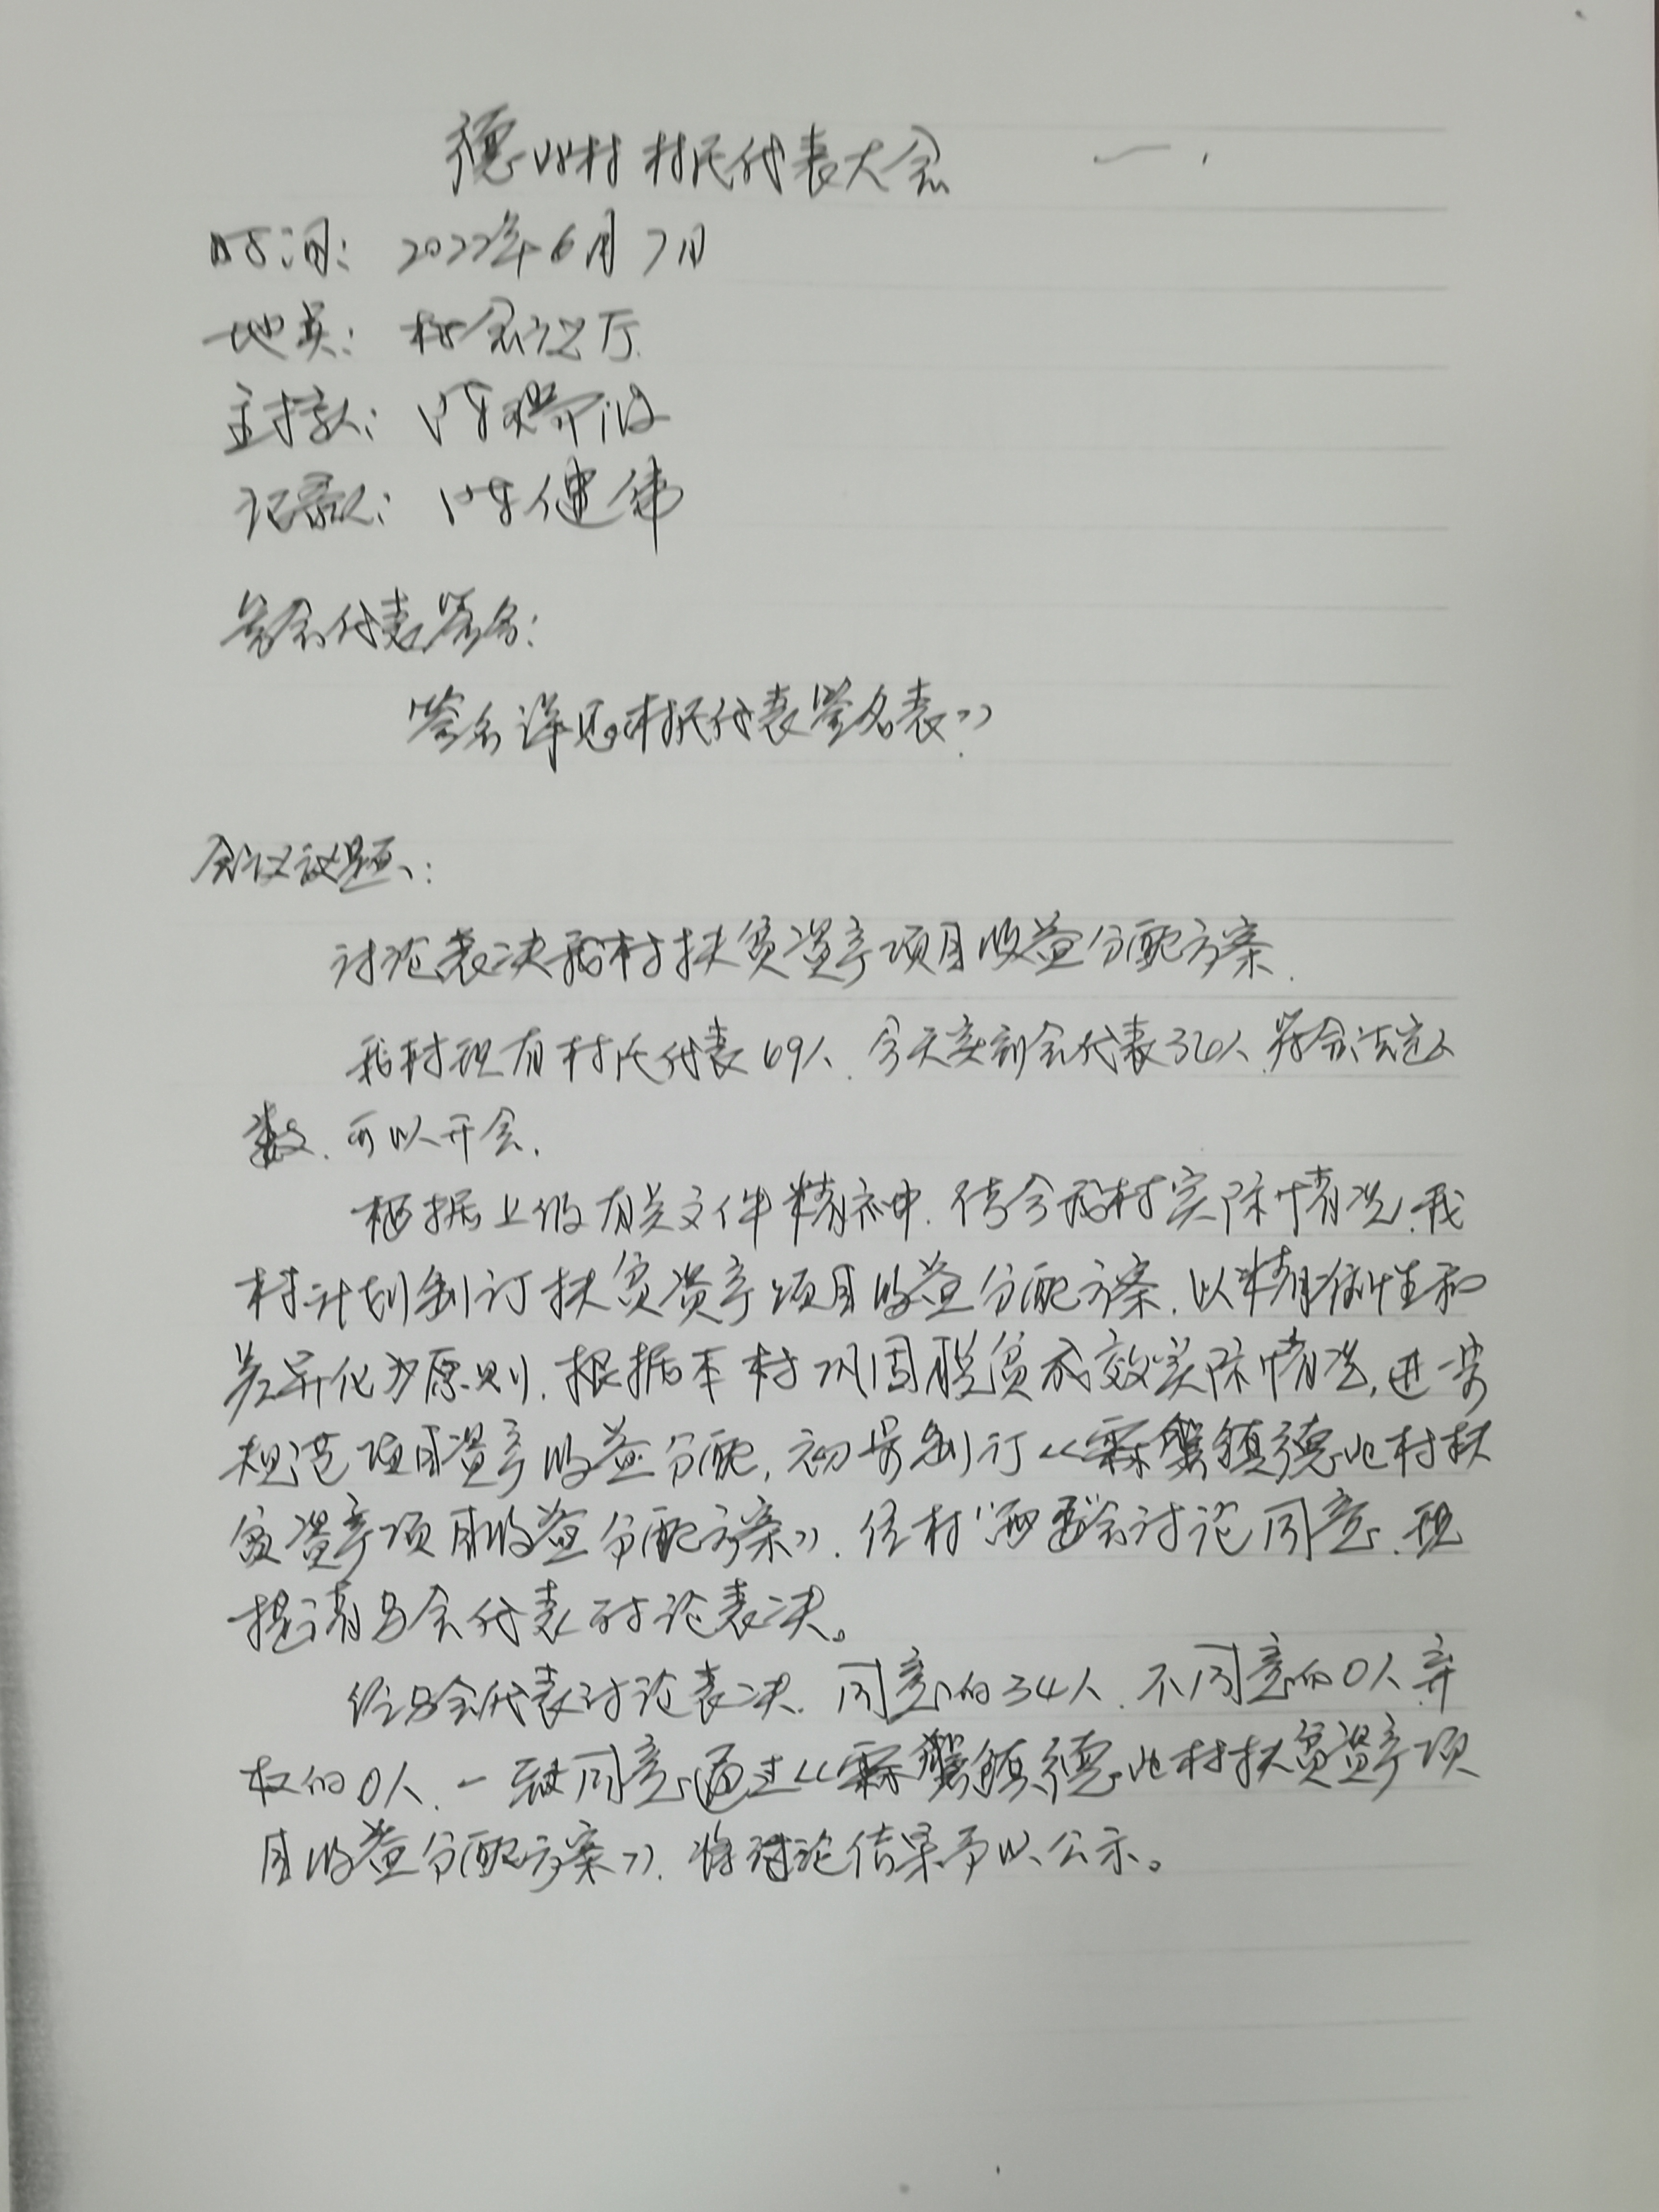 德北村村民代表大会
时间：2022年6月7日
地点：村会议厅
主持人：陈瑞波
记录人：陈健伟
参会代表签名：
签名详见村民代表签名表》.
会议议题：
讨论表决我村扶贫资产项目收益分配方案.
我村现有村民代表69人.今天实到会代表34人.符合法定人
数.可以开会.
根据上级有关文件精神.结合我村实际情况.我
村计划制订扶贫资产项目收益分配方案.以精准性和
差异化为原则.根据本村巩固脱贫成效实际情况,进一步
规范项目资产收益分配,初步制订《霖磐镇德北村扶
贫资产项目收益分配方案》.经村“两委”会讨论同意.现
提请与会代表讨论表决。
经与会代表讨论表决.同意的34人.不同意的0人.弃
权的0人.一致同意通过《霖磐镇德北村扶贫资产项
目收益分配方案》.将讨论结果予以公示。